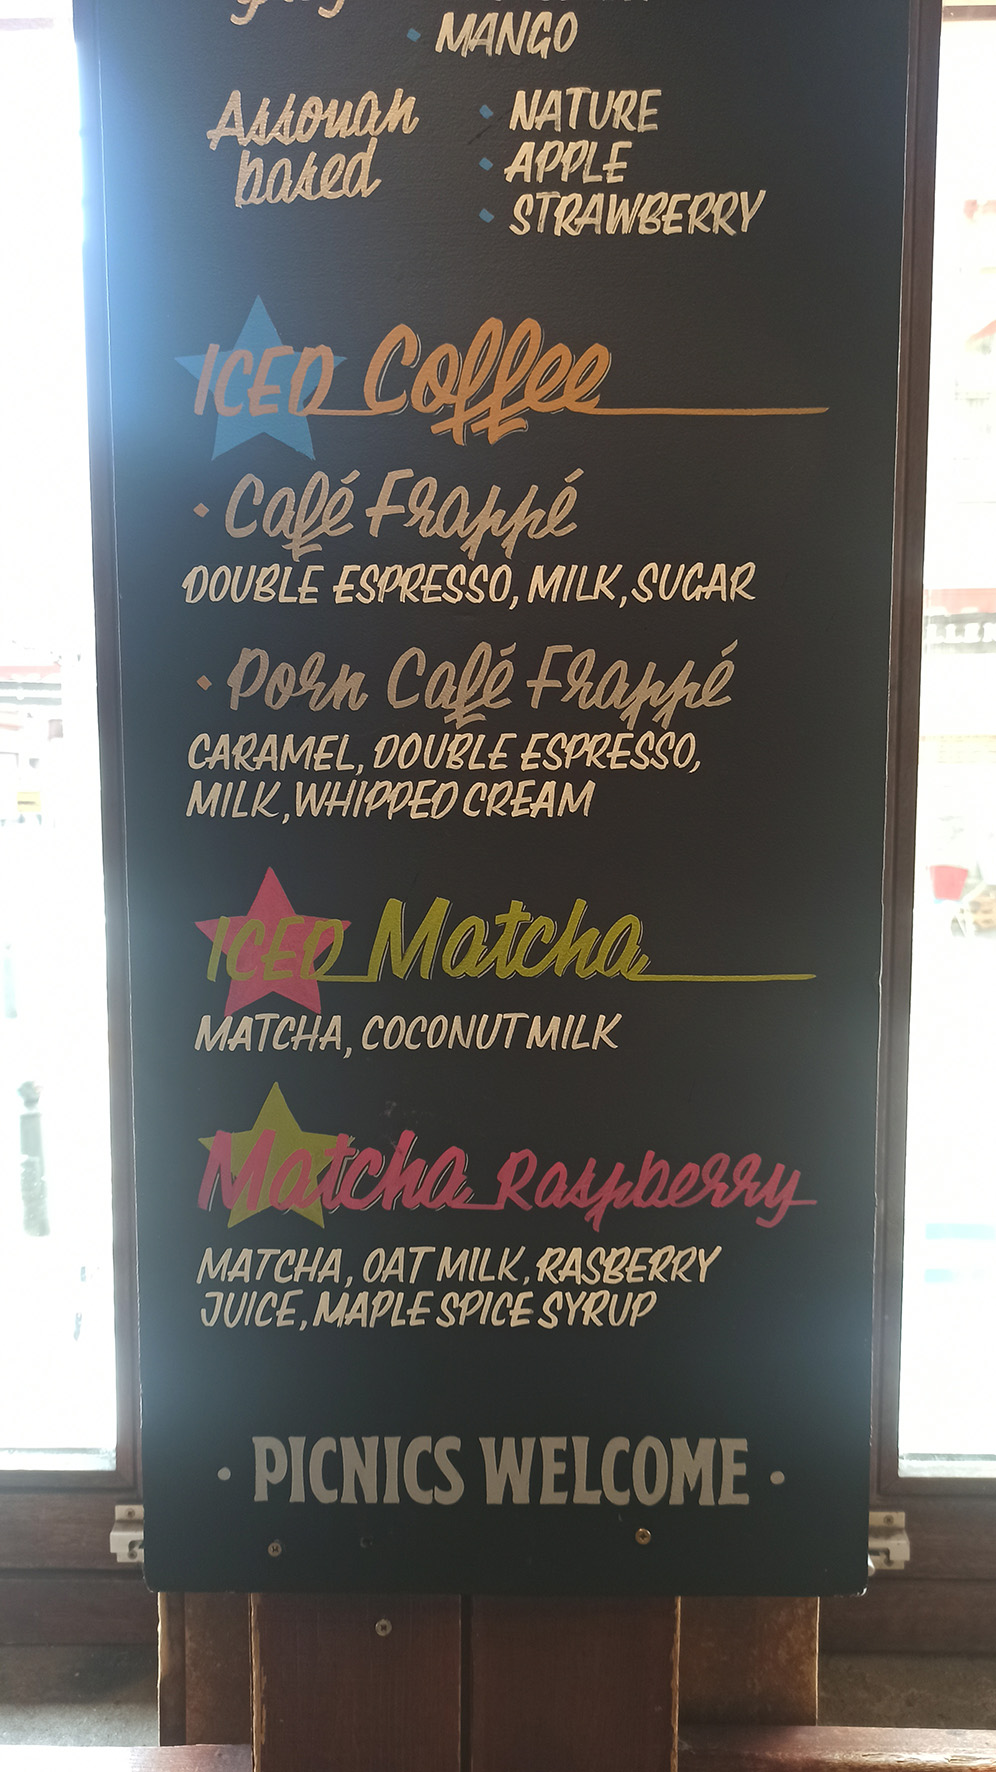 • MANGO
Assouan
based
• NATURE
• APPLE
• STRAWBERRY
ICED Coffee
• Café Frappé
DOUBLE ESPRESSO, MILK, SUGAR
• Porn Café Frappé
CARAMEL, DOUBLE ESPRESSO,
MILK, WHIPPED CREAM
ICED Matcha
MATCHA, COCONUT MILK
Matcha Raspberry
MATCHA, OAT MILK, RASBERRY
JUICE, MAPLE SPICE SYRUP
• PICNICS WELCOME •